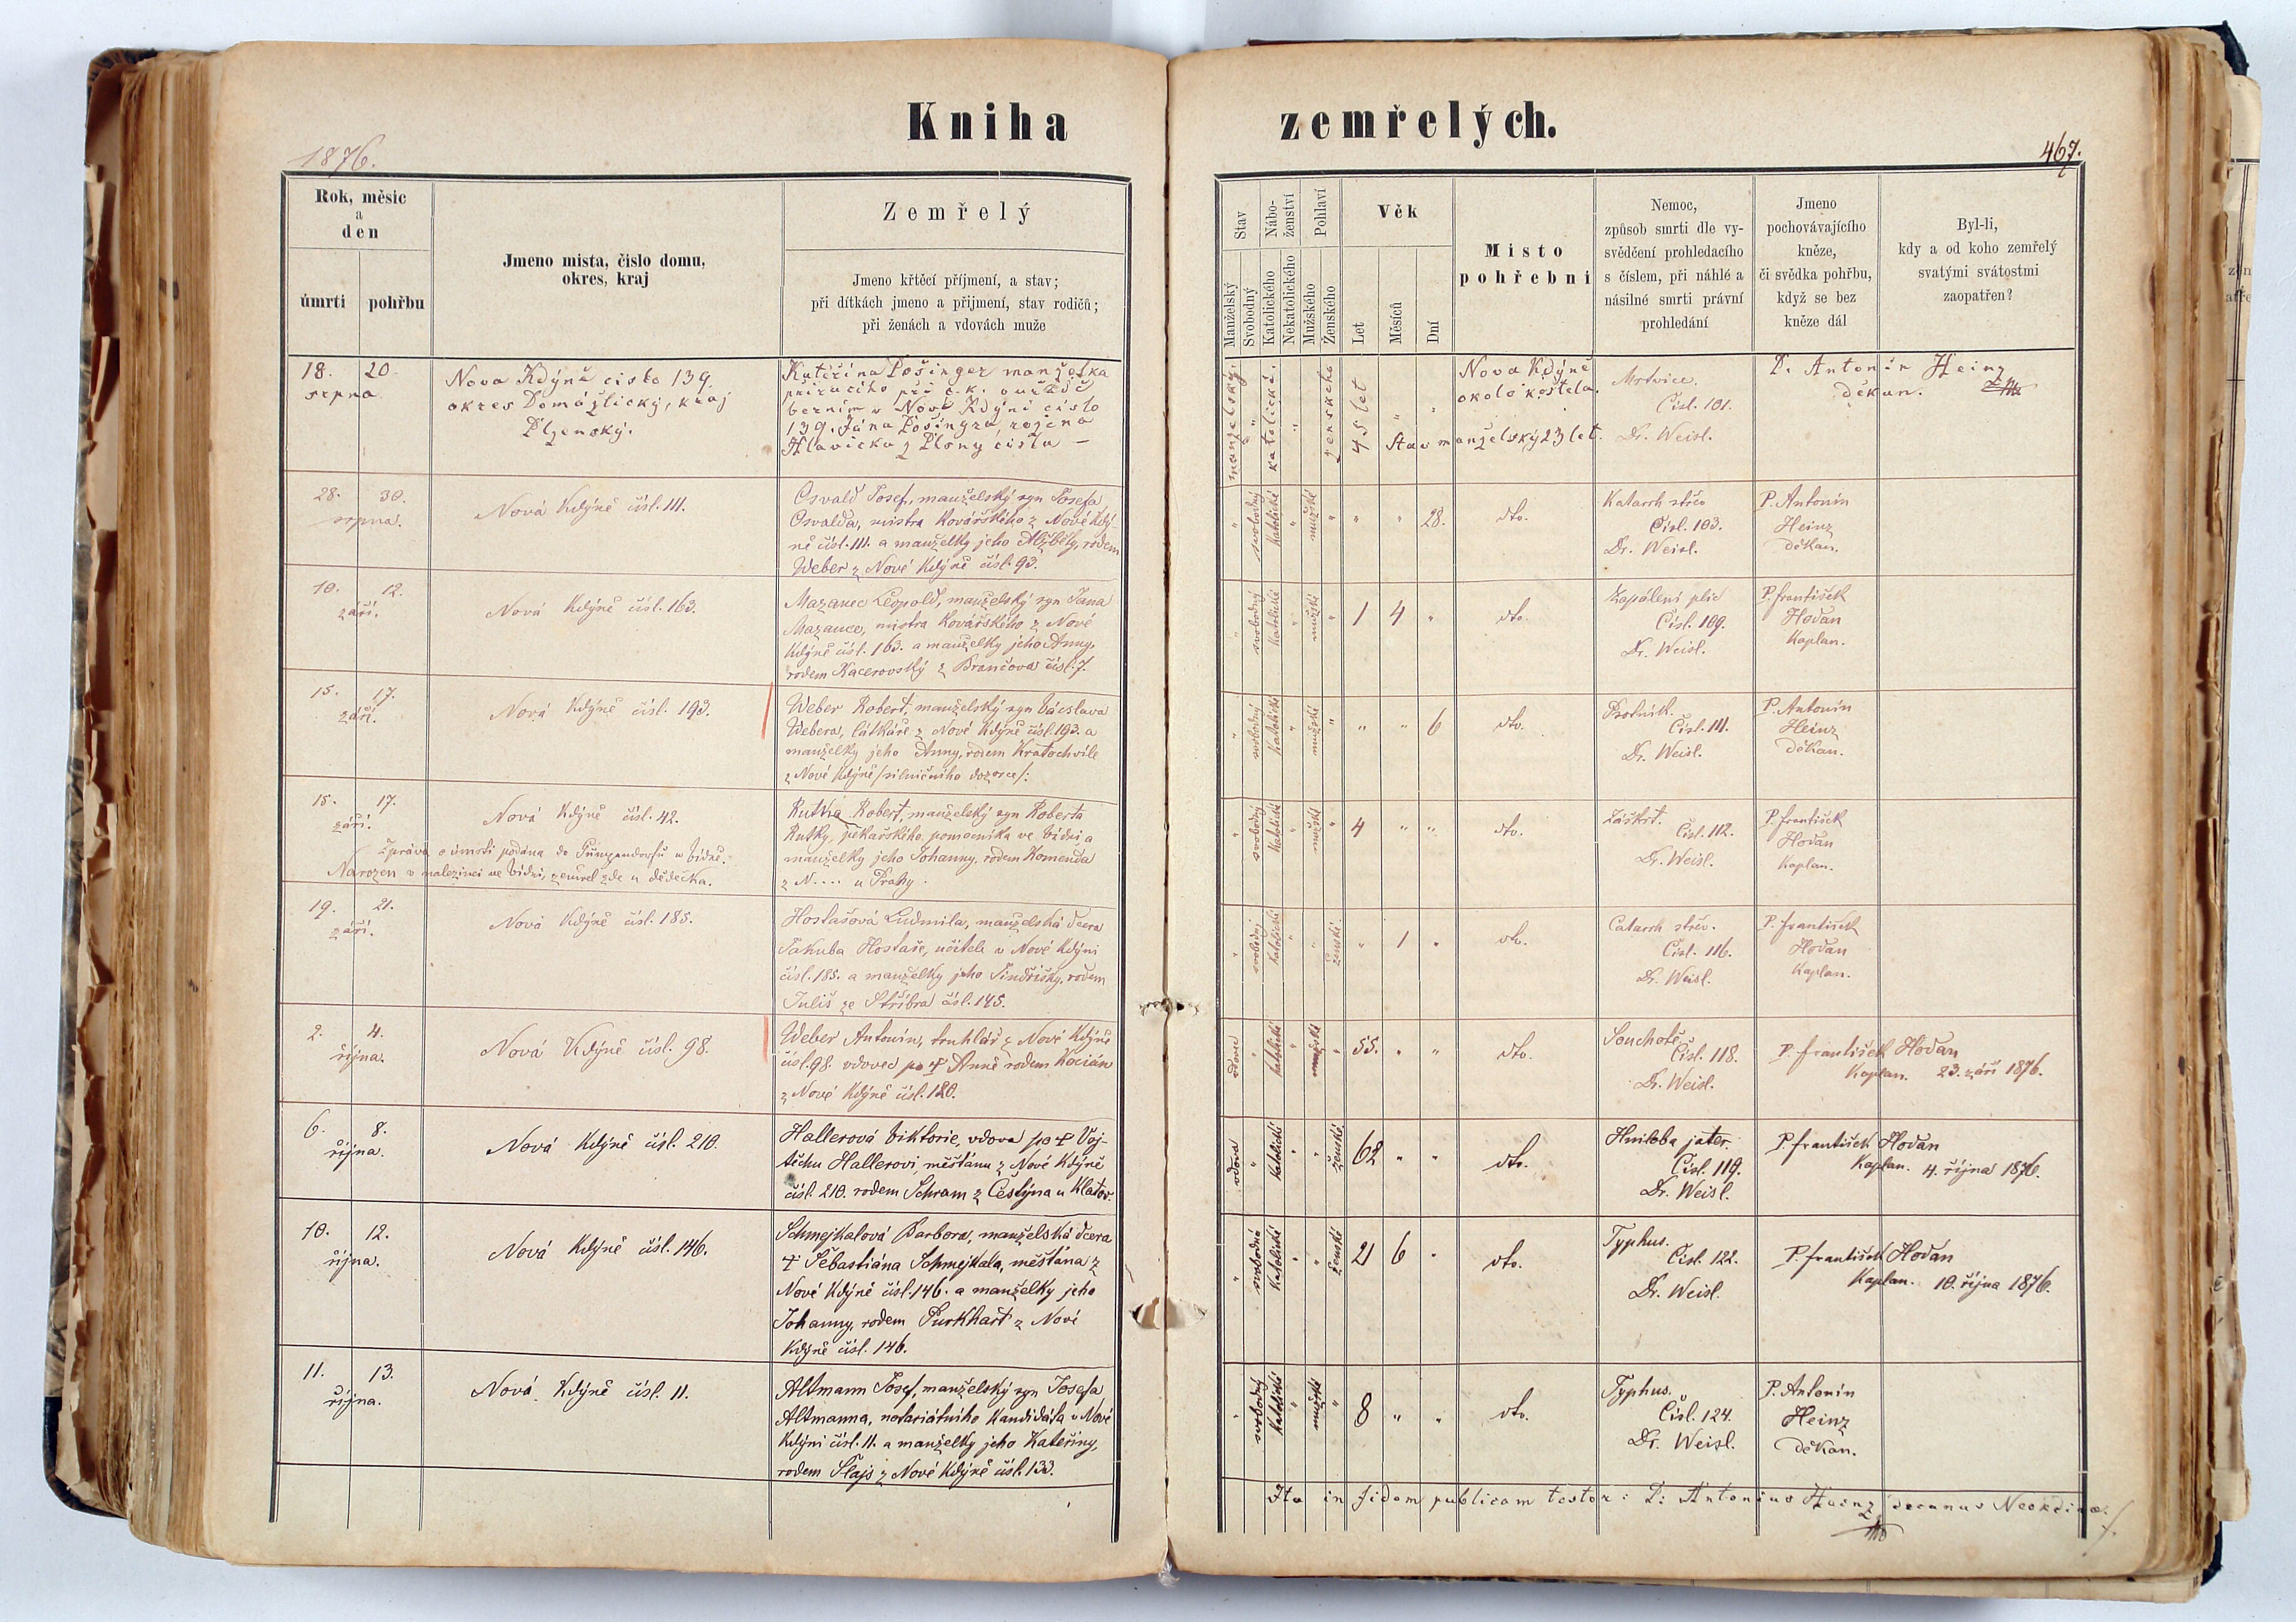 Kniha zemřelých.
1876.
467.
Rok, měsic
a
den
úmrtí
pohřbu
Jmeno mista, čislo domu,
okres, kraj
Zemřelý
Jmeno křtěcí příjmení, a stav;
při dítkách jmeno a přijmení, stav rodičů;
při ženách a vdovách muže
Stav
Manželský
Svobodný
Nábo-
ženství
Katolického
Nekatolického
Pohlaví
Mužského
Ženského
Věk
Let
Měsiců
Dní
Misto
pohřebni
Nemoc,
způsob smrti dle vy-
svědčení prohledacího
s číslem, při náhlé a
násilné smrti právní
prohledání
Jmeno
pochovávajícího
kněze,
či svědka pohřbu,
když se bez
kněze dál
Byl-li,
kdy a od koho zemřelý
svatými svátostmi
zaopatřen?
18. 20
srpna
Nova Kdýně cislo 139.
okres Domážlický, kraj
Plzenský.
Kateřina Pošinger manželka
při c. k.
berním v Nové Kdýni cislo
139. Jána Pošingra, rozená
Hlavicka z Plzny cisla —
manželský
katolická
ženského
45 let
Stav manželský 23 let.
Nova Kdýně
okolo kostela.
Mrtvice.
Čisl. 101.
Dr. Weisl.
P. Antonin Heinz
děkan.
28. 30.
srpna.
Nová Kdýně čísl. 111.
Osvald Josef, manželský syn Josefa
Osvalda, mistra kovářského z Nové Kdý-
ně čísl. 111. a manželky jeho Alžběty, rodem
Weber z Nové Kdýně čísl. 93.
svobodný
katolické
mužské
" " 28.
dto.
Katarrh střev
Čisl. 103.
Dr. Weisl.
P. Antonín
Heinz
děkan.
10. 12.
září.
Nová Kdýně čísl. 163.
Mazanec Leopold, manželský syn Jana
Mazance, mistra kovářského z Nové
Kdýně čísl. 163. a manželky jeho Anny,
rodem Kacerovský z Brančova čísl. 7.
svobodný
katolické
mužské
1 4 "
dto.
Zapálení plic
Čisl. 109.
Dr. Weisl.
P. František
Hodan
Kaplan.
15. 17.
září.
Nová Kdýně čísl. 193.
Weber Robert, manželský syn Václava
Webera, látkáře z Nové Kdýně čísl. 193. a
manželky jeho Anny, rodem Kratochvile
z Nové Kdýně /silničního dozorce/:
svobodný
katolické
mužské
" " 6
dto.
Psotník.
Čisl. 111.
Dr. Weisl.
P. Antonín
Heinz
děkan.
15. 17.
září.
Nová Kdýně čísl. 42.
Zpráva o úmrtí podána do Gumpendorfu u Vídně.
Narozen v nalezinci ve Vídni, zemřel zde u dědečka.
Rutka Robert, manželský syn Roberta
Rutky, pekařského pomocníka ve Vídni a
manželky jeho Johanny, rodem Komenda
z N.... u Prahy.
svobodný
katolické
mužské
4 " "
dto.
Záškrt.
Čisl. 112.
Dr. Weisl.
P. František
Hodan
Kaplan.
19. 21.
září.
Nová Kdýně čísl. 185.
Hostašová Ludmila, manželská dcera
Jakuba Hostaše, učitele v Nové Kdýni
čísl. 185. a manželky jeho Jindřišky, rodem
Juliš ze Stříbra čísl. 145.
svobodný
katolické
ženské
" 1 "
dto.
Catarrh střev.
Čisl. 116.
Dr. Weisl.
P. František
Hodan
Kaplan.
2. 4.
října.
Nová Kdýně čísl. 98.
Weber Antonín, truhlář z Nové Kdýně
čísl. 98. vdovec po † Anně rodem Kocián
z Nové Kdýně čísl. 120.
vdovec
katolické
mužské
55. " "
dto.
Souchotě
Čisl. 118.
Dr. Weisl.
P. František Hodan
Kaplan. 23. září 1876.
6. 8.
října.
Nová Kdýně čísl. 210.
Hallerová Viktorie, vdova po † Voj-
těchu Hallerovi, měšťanu z Nové Kdýně
čísl. 210. rodem Schram z Čestýna u Klatov.
vdova
katolické
ženské
62 " "
dto.
Hniloba jater.
Čisl. 119.
Dr. Weisl.
P. František Hodan
Kaplan. 4. října 1876.
10. 12.
října.
Nová Kdýně čísl. 146.
Schmejkalová Barbora, manželská dcera
† Šebastiána Schmejkala, měšťána z
Nové Kdýně čísl. 146. a manželky jeho
Johanny, rodem Purkhart z Nové
Kdýně čísl. 146.
svobodná
katolické
ženské
21 6 "
dto.
Typhus.
Čisl. 122.
Dr. Weisl.
P. František Hodan
Kaplan. 10. října 1876.
11. 13.
října.
Nová Kdýně čísl. 11.
Altmann Josef, manželský syn Josefa
Altmanna, notariátního kandidáta v Nové
Kdýni čísl. 11. a manželky jeho Kateřiny,
rodem Šlajs z Nové Kdýně čísl. 133.
svobodný
katolické
mužské
8 " "
dto.
Typhus.
Čisl. 124.
Dr. Weisl.
P. Antonín
Heinz
děkan.
Ita in fidem publicam testor: P: Antonius Heinz decanus Neokdinae.